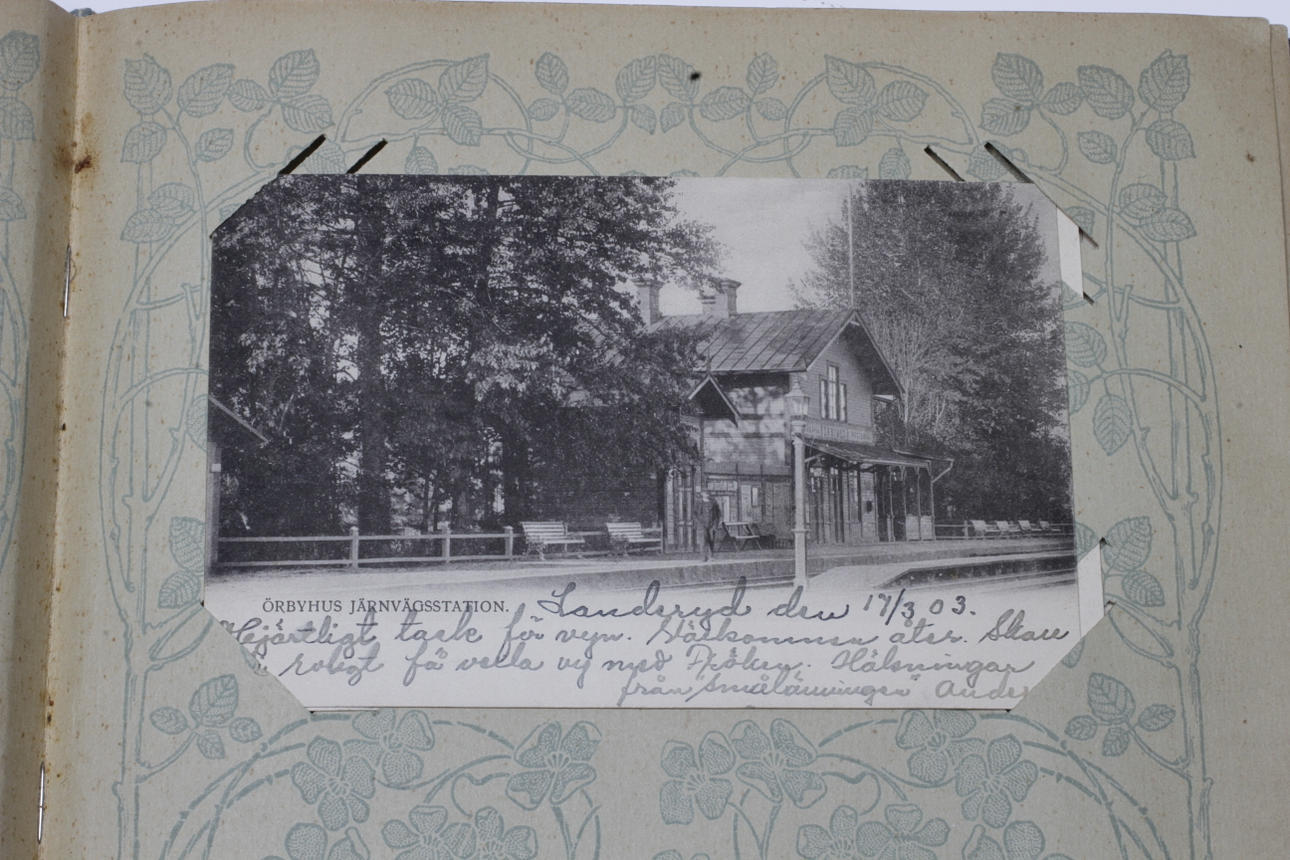 ÖRBYHUS JÄRNVÄGSSTATION. Landeryd den 17/3 03.
Hjärtligt tack för vyn. Välkommen åter. Skall
roligt få växla vy med Fröken. Hälsningar
från "Smålänningen" Ander